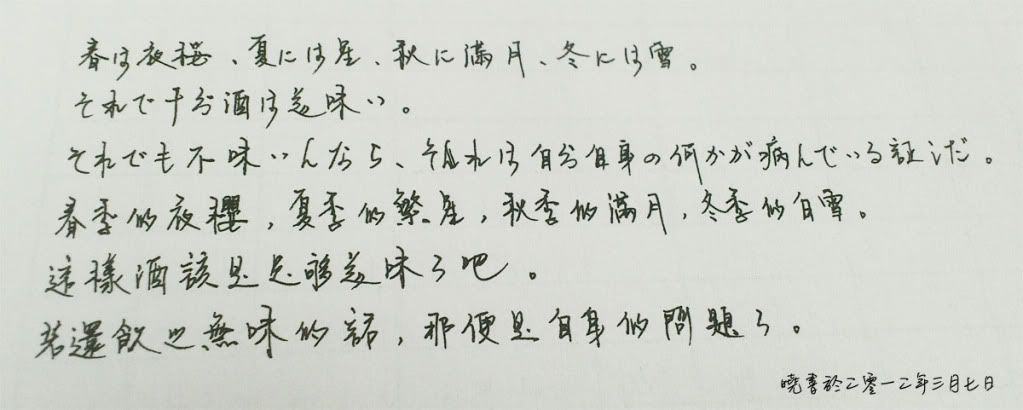 春は夜桜、夏には星、秋に満月、冬には雪。
それで十分酒は美味い。
それでも不味いんなら、それは自分自身の何かが病んでいる証だ。
春季的夜櫻，夏季的繁星，秋季的滿月，冬季的白雪。
這樣酒該是足够美味了吧。
若還飲之無味的話，那便是自身的問題了。
曉書於二零一二年三月七日